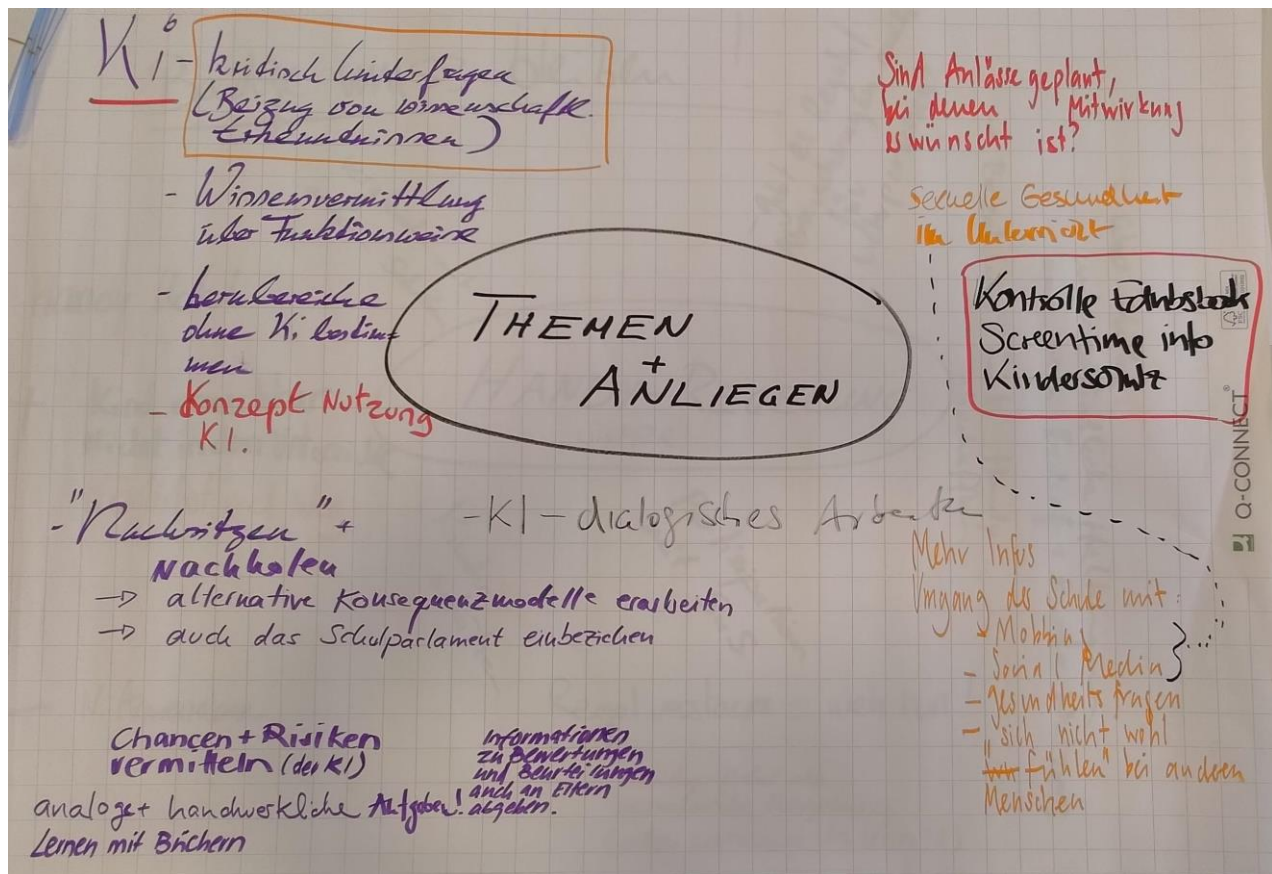 Ki
- kritisch hinterfragen
(Beizug von wissenschaftl.
Erkenntnissen)
- Wissensvermittlung
über Funktionsweise
- Lernbereiche
ohne Ki bestim-
men
- Konzept Nutzung
KI.
THEMEN
+
ANLIEGEN
Sind Anlässe geplant,
bei denen Mitwirkung
erwünscht ist?
Sexuelle Gesundheit
im Unterricht
Kontrolle
Screentime info
Kinderschutz
Q-CONNECT
- "Nachsitzen" +
Nachholen
→ alternative Konsequenzmodelle erarbeiten
→ auch das Schulparlament einbeziehen
- KI - dialogisches Arbeiten
Mehr Infos
Umgang der Schule mit:
- Mobbing
- Social Media
- gesundheitsfragen
- "sich nicht wohl
fühlen" bei anderen
Menschen
Chancen + Risiken
vermitteln (der KI)
analoge + handwerkliche Aufgaben!
Lernen mit Büchern
Informationen
zu Bewertungen
und Beurteilungen
auch an Eltern
abgeben.